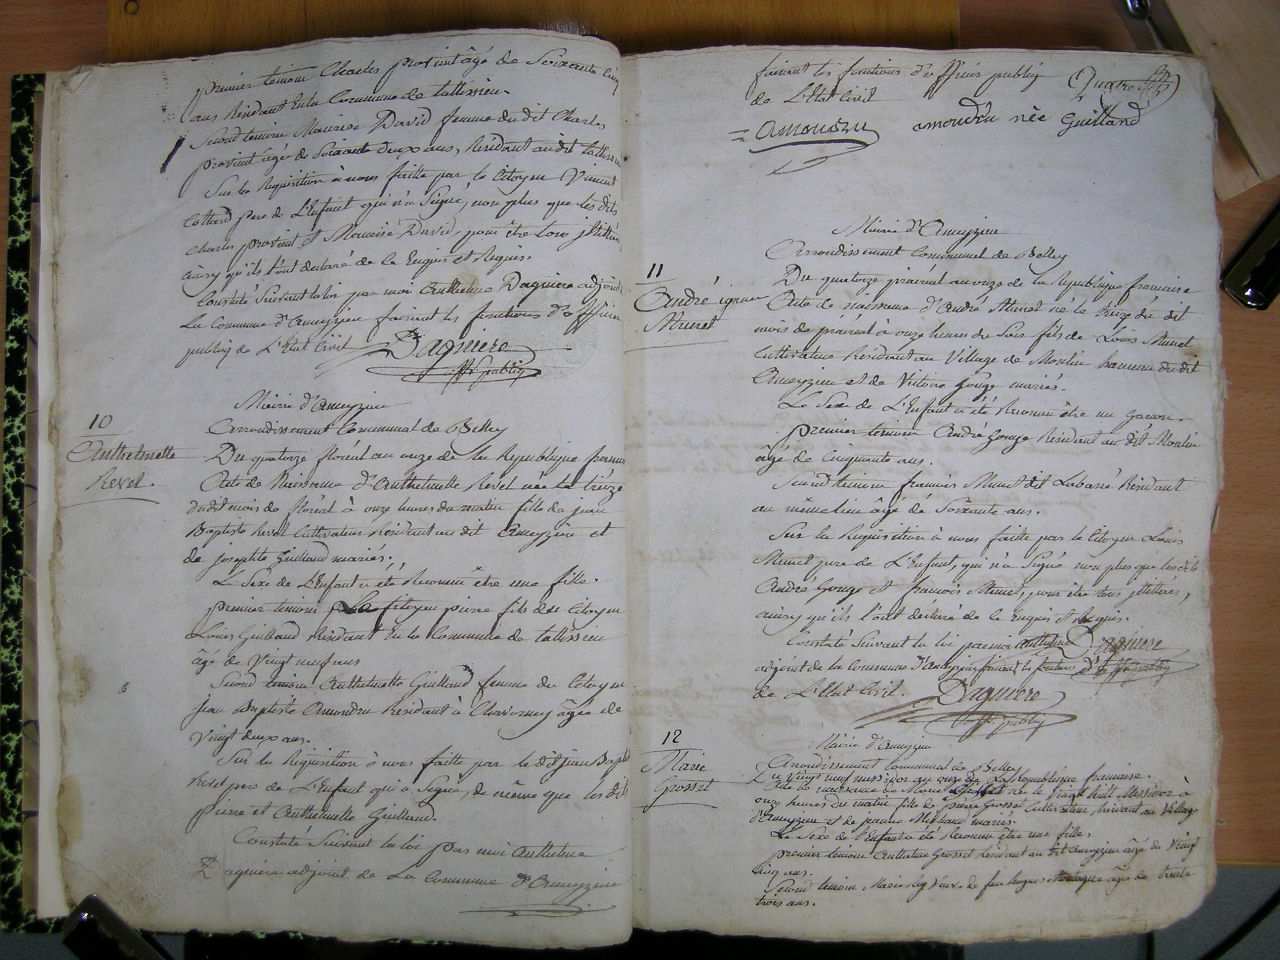 premier temoin Charles provint âgé de Soixante cinq
ans Residant En la Commune de talissieu.
Second temoin Mauricia David femme du dit Charles
provint âgé de Soixante deux ans, Residant au dit talissieu
Sur la Requisition à nous faitte par le Citoyen Vincent
Cottand pere de L'Enfant qui n'a Signé, non plus que les dits
Charles provint et Mauricia David, pour être tous jllitérés
ainsy qu'ils l'ont declaré de la Enquis et Requis.
Constaté Suivant la loi par moi Anthelme Daguiere adjoint
La Commune d'Ameyzieu faisant les fonctions d'officier
public de L'Etat Civil
Daguiere
off. public
Mairie d'Ameyzieu
10
Arrondissement Communal de Belley
Anthelmette
Revel.
Du quatorze floréal an onze de la République franc
Acte de Naissance d'Anthelmette Revel née le treize
du dit mois de floréal à onze heures du matin fille de jean
Baptiste Revel Cultivateur Residant au dit Ameyzieu et
de josephte Guilland mariés.
Le Sexe de L'Enfant a été Reconnu être une fille.
premier temoin Le Citoyen pierre fils du Citoyen
Louis Guilland Residant En la Commune de talissieu
âgé de Vingt neuf ans
Second temoin Anthelmette Guilland femme du Citoyen
jean baptiste Amoudru Residant à Chavornay âgée de
Vingt deux ans.
Sur la Requisition à nous faitte par le dit jean Bap
Revel pere de L'Enfant qui a Signé, de même que les dits
pierre et Anthelmette Guilland.
Constaté Suivant la loi par moi Anthelme
Daguiere adjoint de La Commune d'Ameyzieu
faisant les fonctions d'officier public
de L'Etat Civil
Quatre
amoudru amoudru née Guilland
Mairie d'Ameyzieu
Arrondissement Communal de Belley
11
André
Munet
Du quatorze prairéal an onze de la Republique francaise
Acte de naissance d'André Munet né le treize du dit
mois de prairéal à onze heures du Soir fils de Louis Munet
Cultivateur Residant au Village de Moulin hameau du dit
Ameyzieu et de Victoire Gouge mariés.
Le Sexe de L'Enfant a été Reconnu être un Garcon.
premier temoin André Gouge Residant au dit Moulin
âgé de Cinquante ans.
Second temoin francois Munet dit Labaré Residant
au même lieu âgé de Soixante ans.
Sur la Requisition à nous faitte par le Citoyen Louis
Munet pere de L'Enfant, qui n'a Signé non plus que les dits
André Gouge et francois Munet, pour être tous jllitérés,
ainsy qu'ils l'ont declaré de la Enquis et Requis.
Constaté Suivant la loi par moi anthelme Daguiere
adjoint de la Commune d'Ameyzieu faisant les fonctions d'off. public
de L'Etat Civil. Daguiere
off. public
12
Mairie d'Ameyzieu
Marie
Grosset
Arrondissement Communal de Belley
Du Vingt neuf messidor an onze de La Republique francaise.
Acte de naissance de Marie Grosset née le Vingt huit Messidor à
onze heures du matin fille de pierre Grosset Cultivateur Residant au Village
d'Ameyzieu et de jeanne Michaud mariés.
Le Sexe de l'Enfant a été Reconnu être une fille.
premier temoin Anthelme Grosset Residant au dit Ameyzieu âgé de Vingt
Cinq ans.
Second temoin Marie Veuve de feu âgée de trente
trois ans.